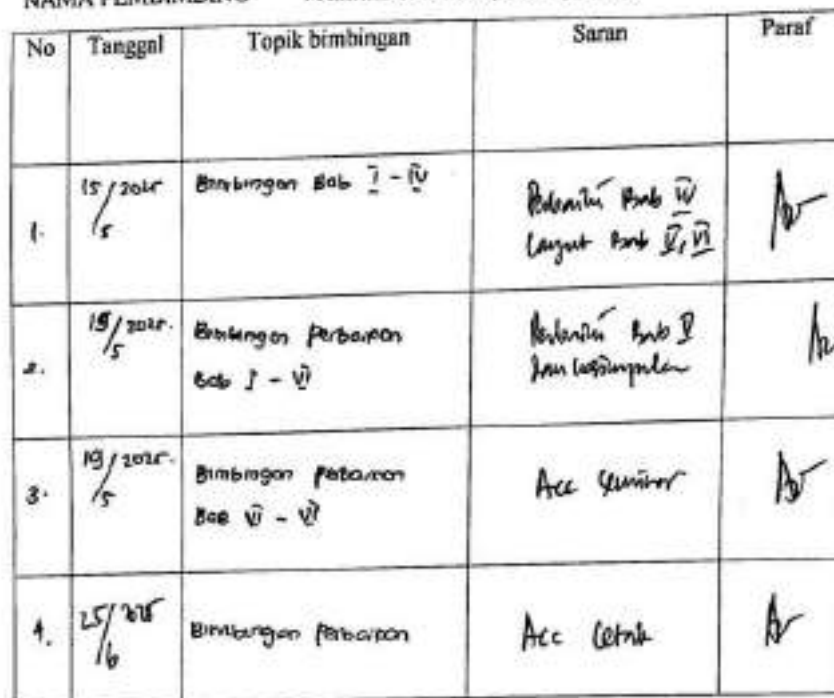 NAMA PEMBIMBING
No Tanggal Topik bimbingan Saran Paraf
1. 15/5 2025 Bimbingan Bab I - IV Perbaiki Bab IV
Lanjut Bab V, VI
2. 19/5 2025. Bimbingan perbaikan Perbaiki Bab V
Bab I - VI dan kesimpulan
3. 19/5 2025. Bimbingan perbaikan Acc Seminar
Bab VI - VI
4. 25/6 2025 Bimbingan perbaikan Acc Cetak